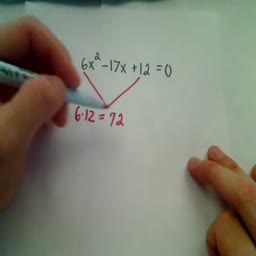 6x²-17x+12=0
6·12=72